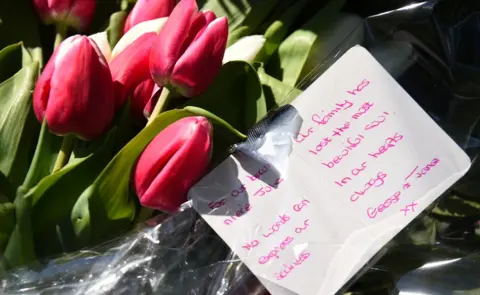 For our
niece Ju
No words can
express our
sadness
Our family has
lost the most
beautiful soul.
In our hearts
always
George + Jones
xx